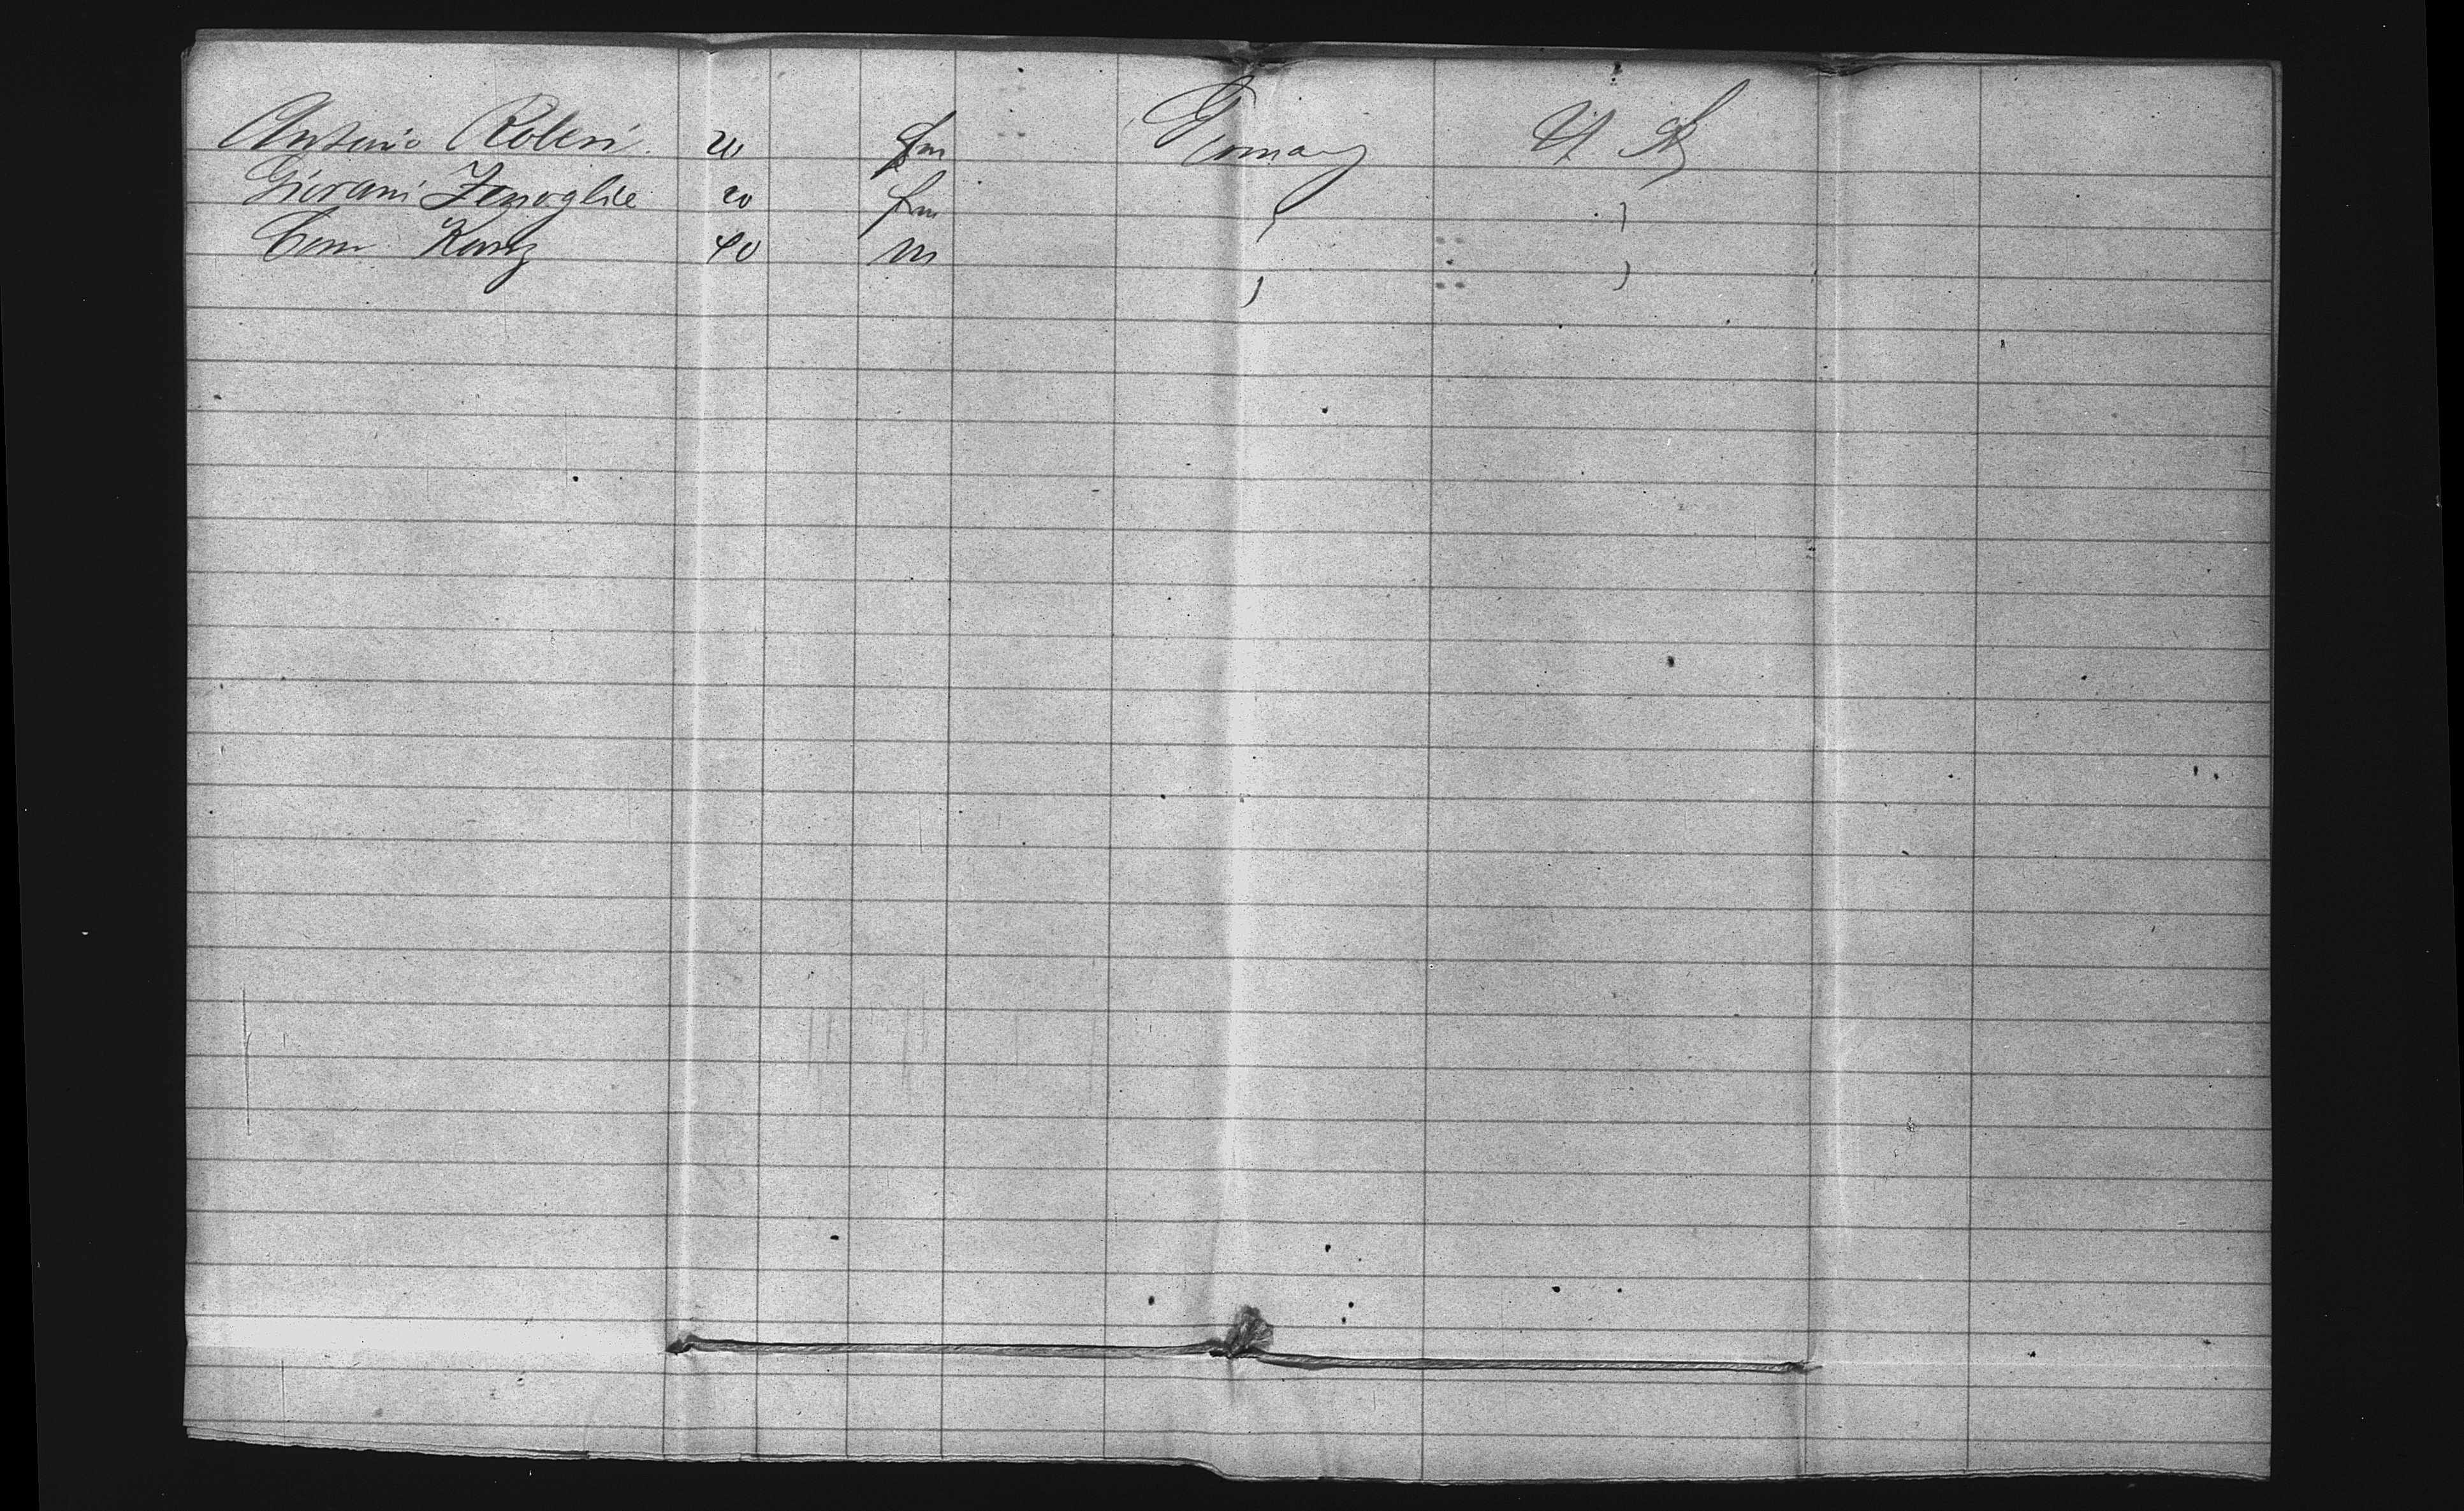 Antonio Roleri 20 fm Germany U St
Giovani Zenoglie 20 fm " "
Com Kanz 40 m " "